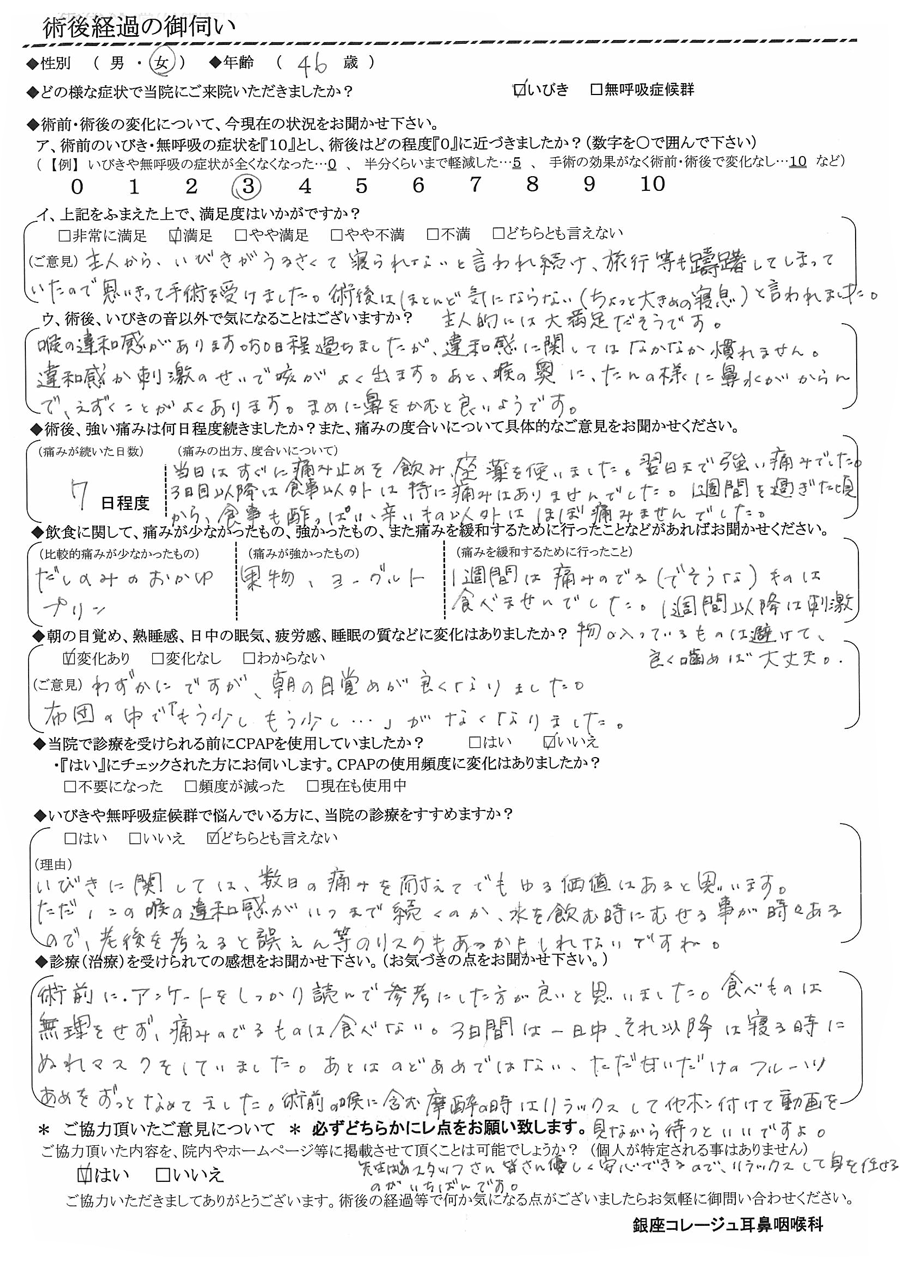 術後経過の御伺い
◆性別 ( 男 ・ 女 ) ◆年齢 ( 46 歳 )
◆どの様な症状で当院にご来院いただきましたか? ☑いびき □無呼吸症候群
◆術前・術後の変化について、今現在の状況をお聞かせ下さい。
ア、術前のいびき・無呼吸の症状を『10』とし、術後はどの程度『0』に近づきましたか?(数字を〇で囲んで下さい)
(【例】 いびきや無呼吸の症状が全くなくなった…0 、 半分くらいまで軽減した…5 、 手術の効果がなく術前・術後で変化なし…10 など)
0 1 2 3 4 5 6 7 8 9 10
イ、上記をふまえた上で、満足度はいかがですか?
□非常に満足 ☑満足 □やや満足 □やや不満 □不満 □どちらとも言えない
(ご意見) 主人から、いびきがうるさくて寝られないと言われ続け、旅行等も躊躇してしまって
いたので思いきって手術を受けました。術後はほとんど気にならない(ちょっと大きめの寝息)と言われました。
主人的には大満足だそうです。
ウ、術後、いびきの音以外で気になることはございますか?
喉の違和感があります。50日程過ちましたが、違和感に関してはなかなか慣れません。
違和感か刺激のせいで咳がよく出ます。あと、喉の奥に、たんの様に鼻水がからん
で、えずくことがよくあります。まめに鼻をかむと良いようです。
◆術後、強い痛みは何日程度続きましたか?また、痛みの度合いについて具体的なご意見をお聞かせください。
(痛みが続いた日数) (痛みの出方、度合いについて)
7 日程度
当日はすぐに痛み止めを飲み、座薬を使いました。翌日まで強い痛みでした。
3日目以降は食事以外は特に痛みはありませんでした。1週間を過ぎた頃
から、食事も酢っぱい、辛いもの以外はほぼ痛みませんでした。
◆飲食に関して、痛みが少なかったもの、強かったもの、また痛みを緩和するために行ったことなどがあればお聞かせください。
(比較的痛みが少なかったもの) (痛みが強かったもの) (痛みを緩和するために行ったこと)
だしのみのおかゆ
プリン
果物、ヨーグルト
1週間は痛みのでる(でそうな)ものは
食べませんでした。1週間以降は刺激
物の入っているものは避けて、
良く噛めば大丈夫。
◆朝の目覚め、熟睡感、日中の眠気、疲労感、睡眠の質などに変化はありましたか?
☑変化あり □変化なし □わからない
(ご意見) わずかにですが、朝の目覚めが良くなりました。
布団の中で「もう少しもう少し…」がなくなりました。
◆当院で診療を受けられる前にCPAPを使用していましたか? □はい ☑いいえ
・『はい』にチェックされた方にお伺いします。CPAPの使用頻度に変化はありましたか?
□不要になった □頻度が減った □現在も使用中
◆いびきや無呼吸症候群で悩んでいる方に、当院の診療をすすめますか?
□はい □いいえ ☑どちらとも言えない
(理由)
いびきに関しては、数日の痛みを耐えてでもやる価値はあると思います。
ただ、この喉の違和感がいつまで続くのか、水を飲む時にむせる事が時々ある
ので、老後を考えると誤えん等のリスクもあるかもしれないですね。
◆診療(治療)を受けられての感想をお聞かせ下さい。(お気づきの点をお聞かせ下さい。)
術前に、アンケートをしっかり読んで参考にした方が良いと思いました。食べものは
無理をせず、痛みのでるものは食べない。3日間は一日中、それ以降は寝る時に
ぬれマスクをしていました。あとはのどあめではない、ただ甘いだけのフルーツ
あめをずっとなめてました。術前の喉に含む麻酔の時はリラックスしてイヤホン付けて動画を
見ながら待つといいですよ。
* ご協力頂いたご意見について * 必ずどちらかにレ点をお願い致します。
ご協力頂いた内容を、院内やホームページ等に掲載させて頂くことは可能でしょうか? (個人が特定される事はありません)
☑はい □いいえ
スタッフさん皆さん優しく安心できるので、リラックスして身を任せる
のがいちばんです。
ご協力いただきましてありがとうございます。術後の経過等で何か気になる点がございましたらお気軽に御問い合わせください。
銀座コレージュ耳鼻咽喉科